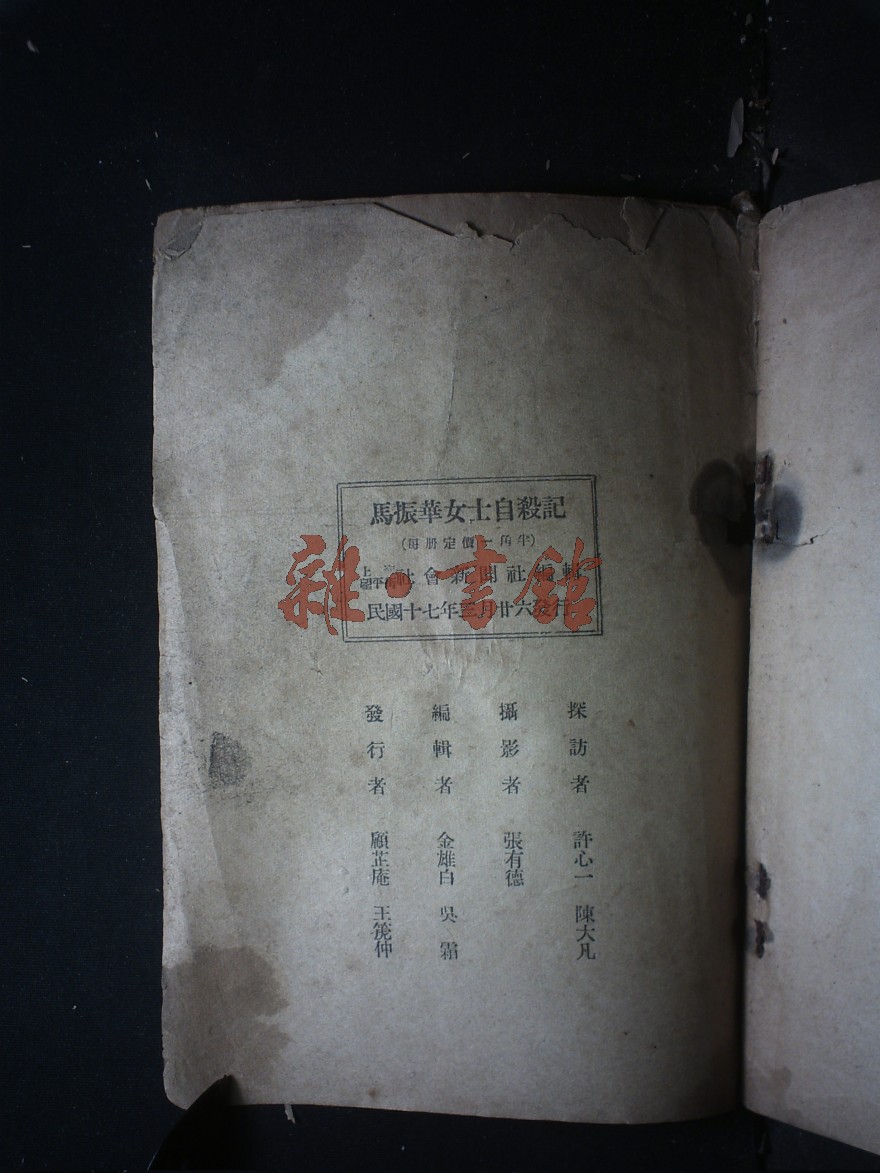 馬振華女士自殺記
(每册定價一角半)
上海 社會新聞社編輯
民國十七年三月廿六發行
探訪者 許心一 陳大凡
攝影者 張有德
編輯者 金雄白 吳霜
發行者 顧芷庵 王篪仲
雜·書館